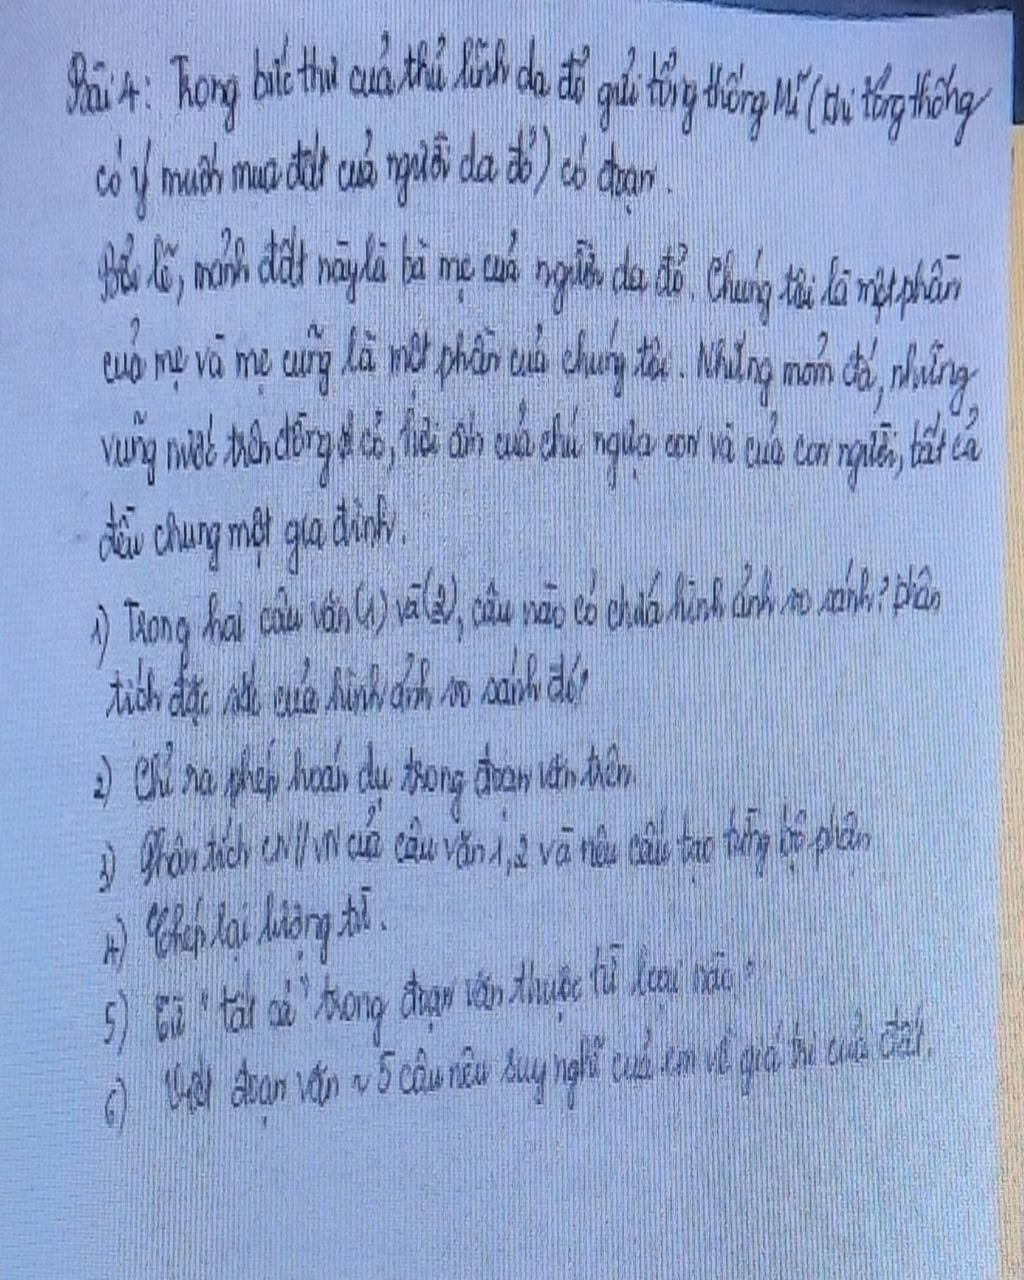 Bài 4: Trong bức thư của thủ lĩnh da đỏ gửi tổng thống Mĩ (khi tổng thống
có ý muốn mua đất của người da đỏ) có đoạn.
Bởi lẽ, mảnh đất này là bà mẹ của người da đỏ. Chúng tôi là một phần
của mẹ và mẹ cũng là một phần của chúng tôi. Những mỏm đá, những
vũng nước trên đồng cỏ, hơi ấm của chú ngựa con và của con người, tất cả
đều chung một gia đình.
1) Trong hai câu văn (1) và (2), câu nào có chứa hình ảnh so sánh? Phân
tích đặc sắc của hình ảnh so sánh đó!
2) Chỉ ra phép hoán dụ trong đoạn văn trên.
3) Phân tích CN//VN của câu văn 1, 2 và nêu cấu tạo từng bộ phận
4) Chép lại lượng từ.
5) Từ "tất cả" trong đoạn văn thuộc từ loại nào?
6) Viết đoạn văn ~ 5 câu nêu suy nghĩ của em về giá trị của đất.